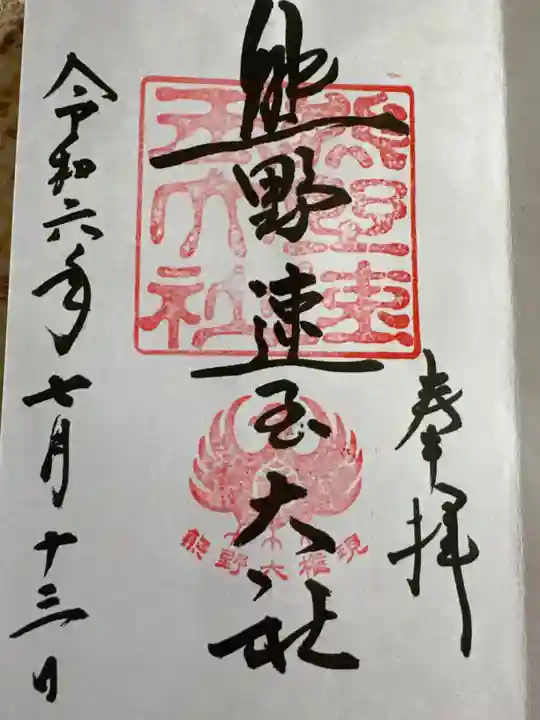 奉拝
熊野速玉大社
熊野速
玉大社
熊野大権現
令和六年七月十三日